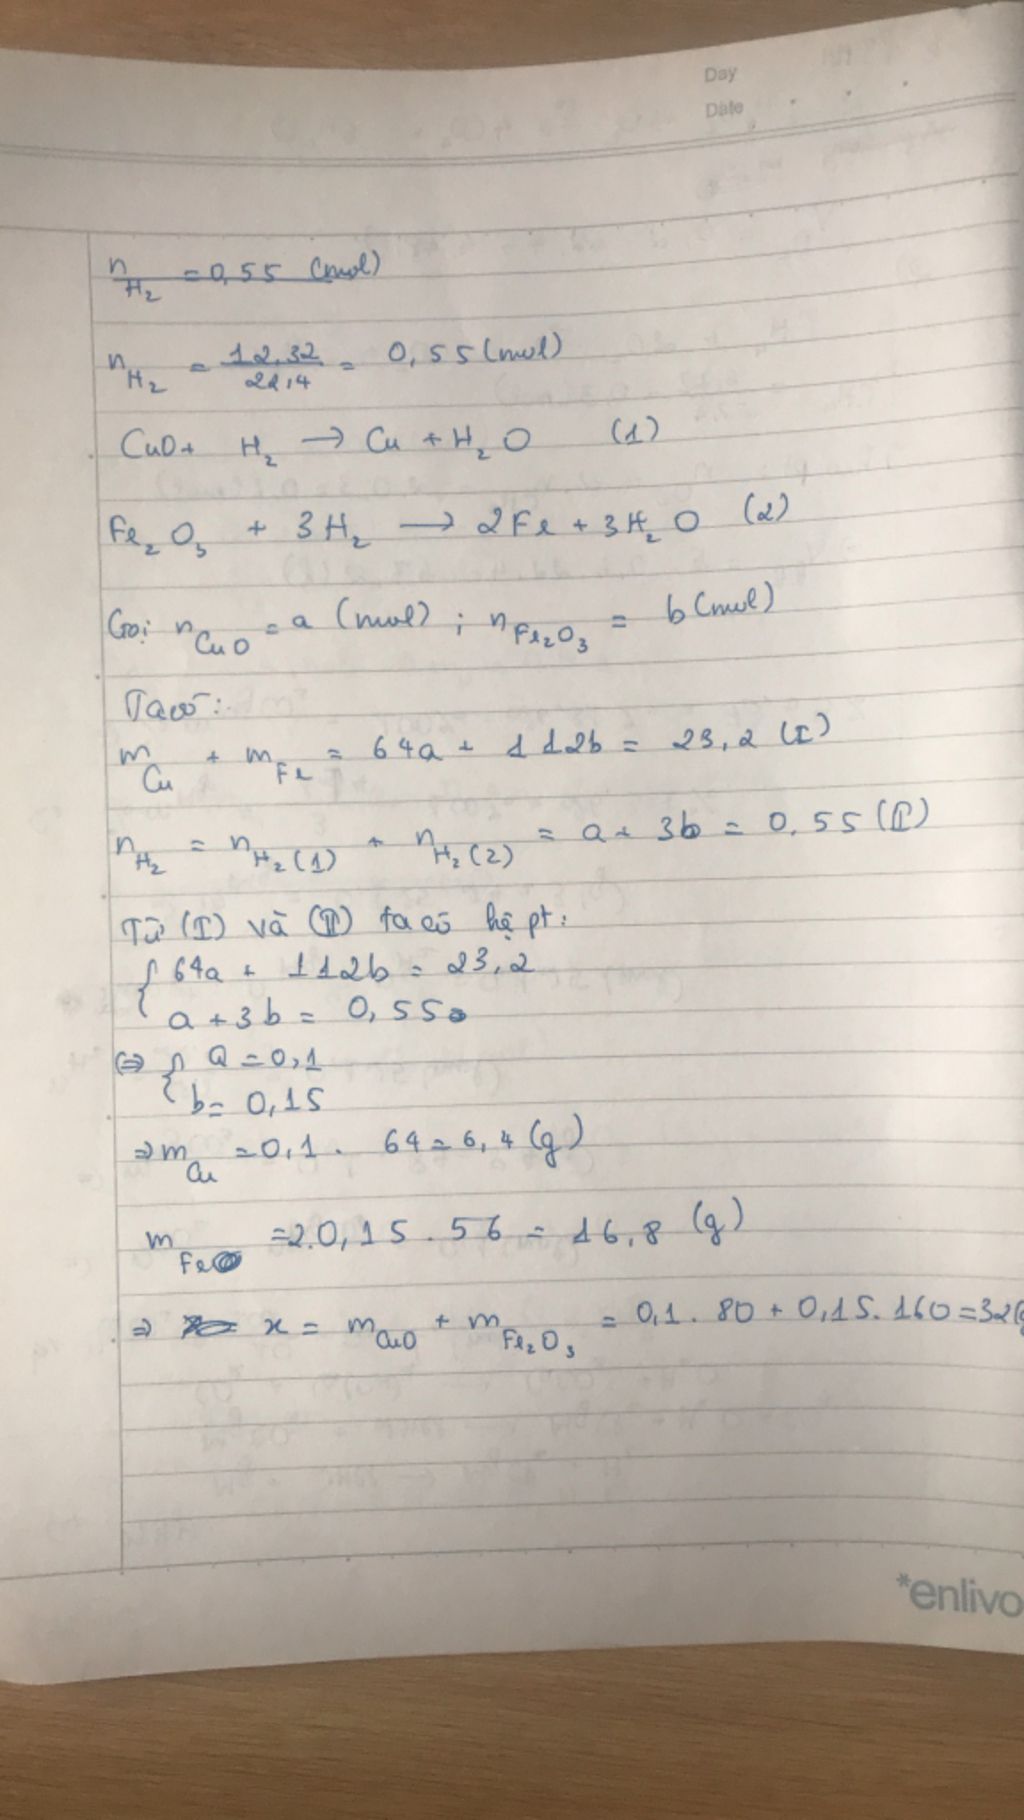 Day
Date
n H₂ = 0,55 (mol)
n H₂ = 12,32 / 22,4 = 0,55 (mol)
CuO + H₂ → Cu + H₂O (1)
Fe₂O₃ + 3H₂ → 2Fe + 3H₂O (2)
Gọi n CuO = a (mol) ; n Fe₂O₃ = b (mol)
Ta có:
m Cu + m Fe = 64a + 112b = 23,2 (I)
n H₂ = n H₂(1) + n H₂(2) = a + 3b = 0,55 (II)
Từ (I) và (II) ta có hệ pt:
{ 64a + 112b = 23,2
a + 3b = 0,55
⇔ { a = 0,1
b = 0,15
⇒ m Cu = 0,1 . 64 = 6,4 (g)
m Fe = 2.0,15 . 56 = 16,8 (g)
⇒ x = m CuO + m Fe₂O₃ = 0,1 . 80 + 0,15. 160 = 32(g
*enlivo